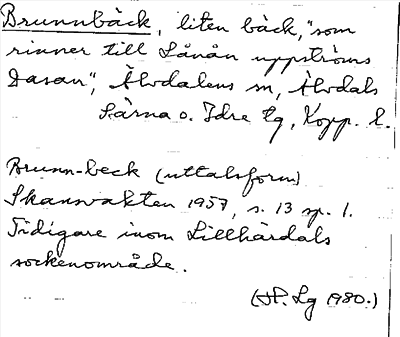 Brunnbäck, liten bäck, "som
rinner till Lånån uppströms
Dasan", Älvdalens sn, Älvdals
Särna o. Idre tg, Kopp. l.
Brunn-beck (uttalsform)
Skansvakten 1957, s. 13 sp. 1.
Tidigare inom Lillhärdals
sockenområde.
(H. Lg 1980.)